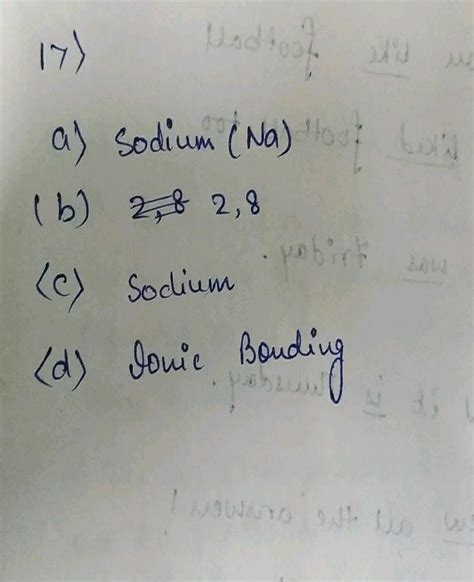 17)
a) Sodium (Na)
(b) 2,8 2,8
(c) Sodium
(d) Ionic Bonding